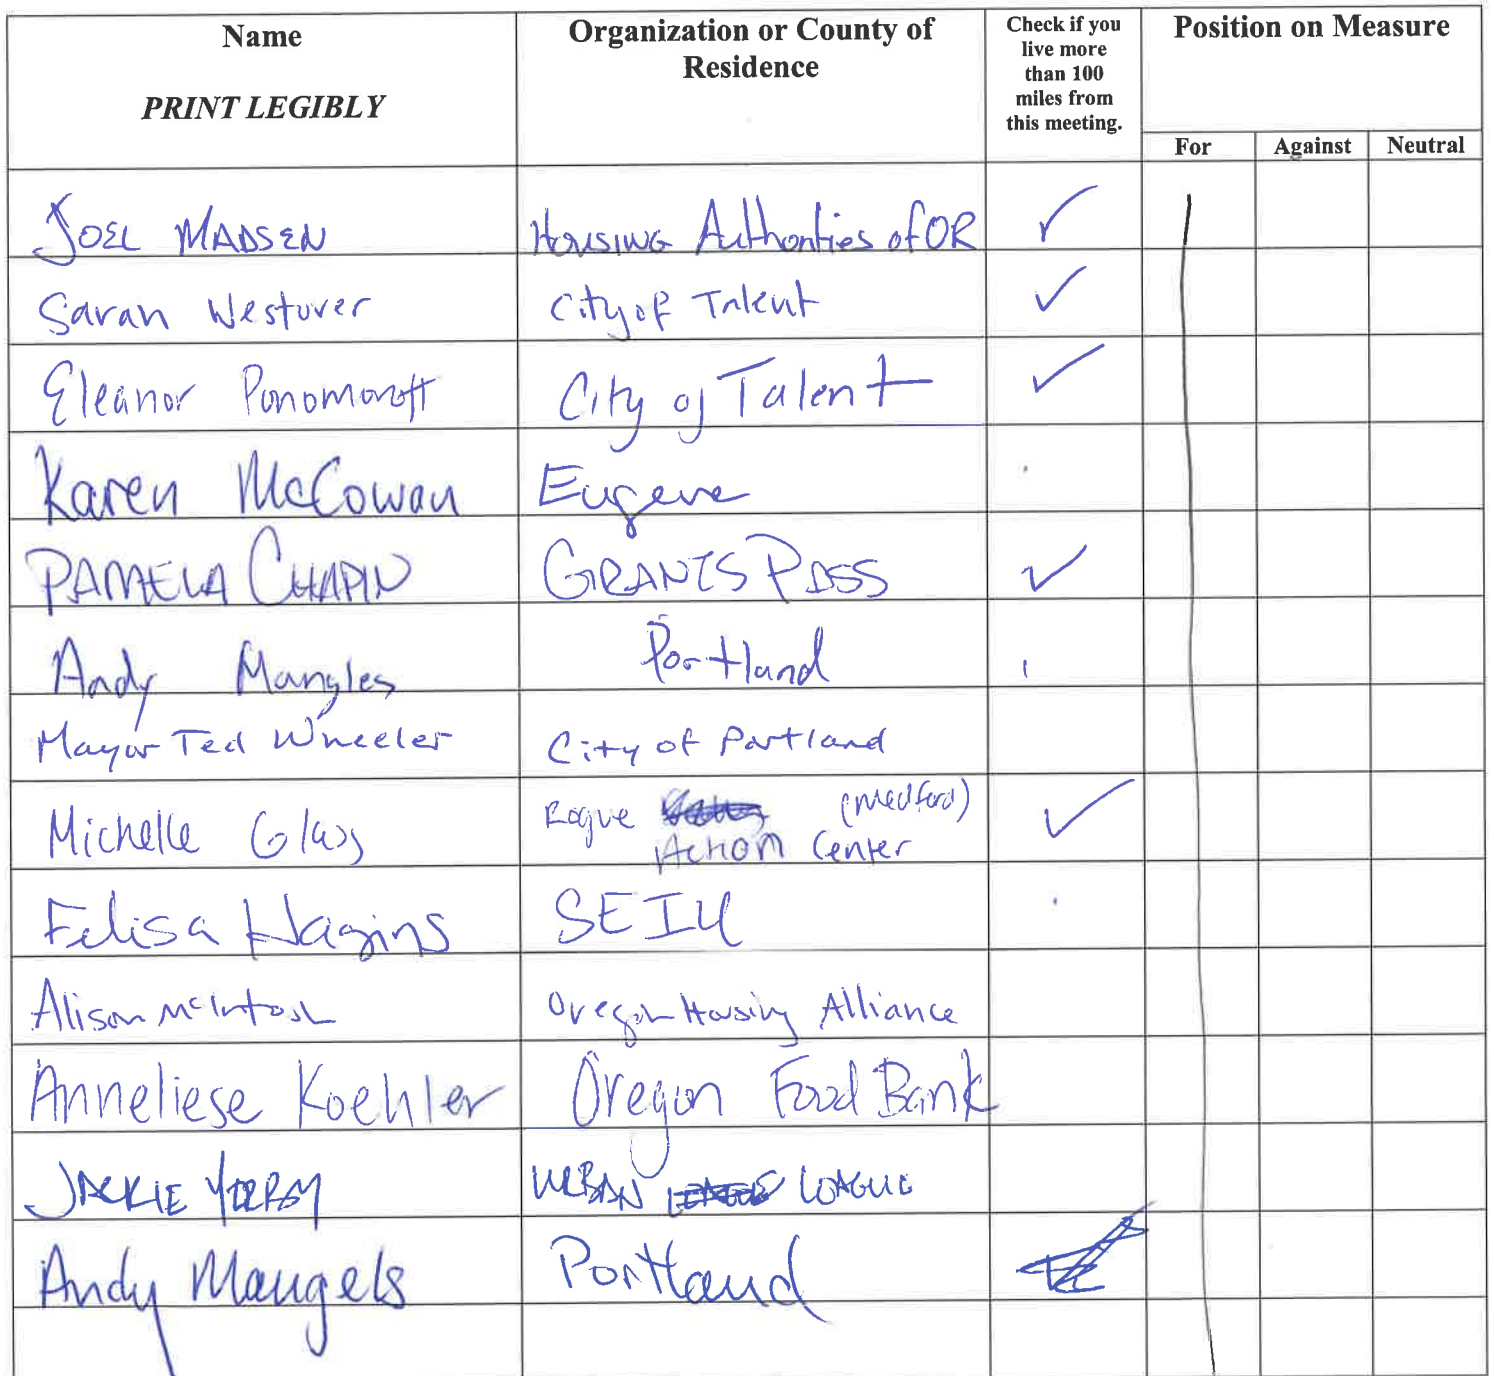 Name Organization or County of Residence Check if you live more than 100 miles from this meeting. Position on Measure
PRINT LEGIBLY
For Against Neutral
JOEL MADSEN Housing Authorities of OR ✓
Sarah Westover City of Talent ✓
Eleanor Ponomareff City of Talent ✓
Karen McCowan Eugene
PAMELA CHAPIN GRANTS PASS ✓
Andy Mangles Portland
Mayor Ted Wheeler City of Portland
Michelle Glass Rogue (Medford) ✓
Action Center
Felisa Hagins SEIU
Alison McIntosh Oregon Housing Alliance
Anneliese Koehler Oregon Food Bank
JACKIE YERBY URBAN LEAGUE
Andy Mangels Portland